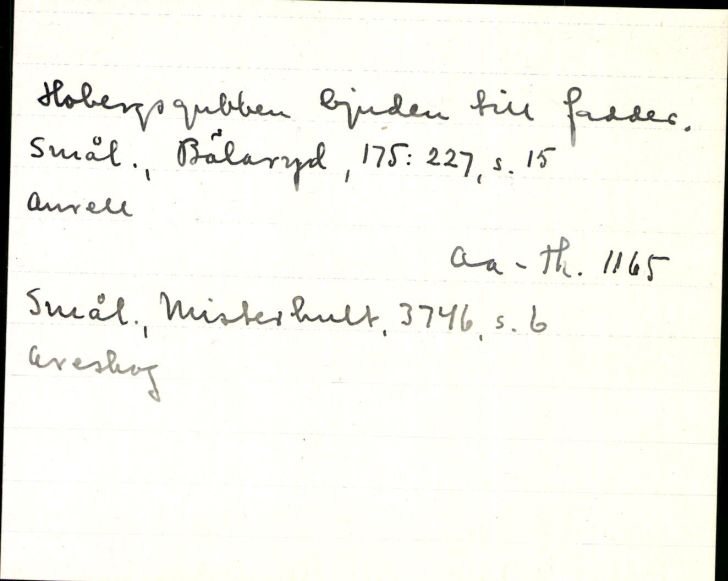 Hobergsgubben bjuden till fadder.
Smål., Bälaryd, 175: 227, s. 15
Aurell
Aa-Th. 1165
Smål., Misterhult, 3746, s. 6
Areskog